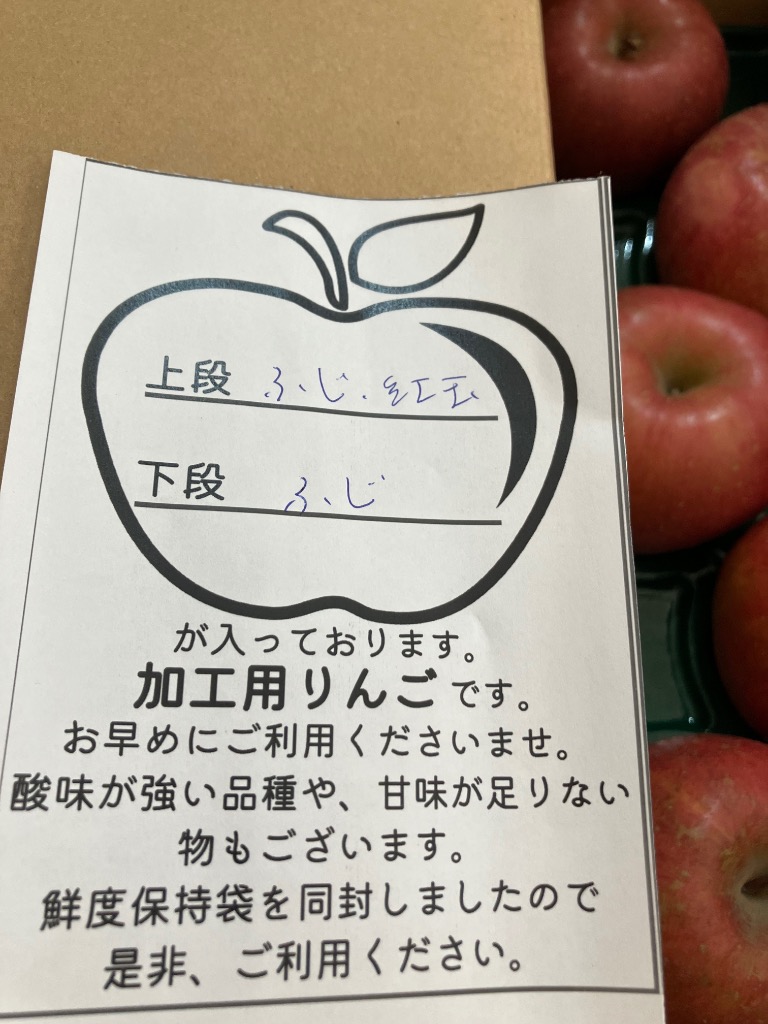 上段 ふじ.紅玉
下段 ふじ
が入っております。
加工用りんごです。
お早めにご利用くださいませ。
酸味が強い品種や、甘味が足りない
物もございます。
鮮度保持袋を同封しましたので
是非、ご利用ください。